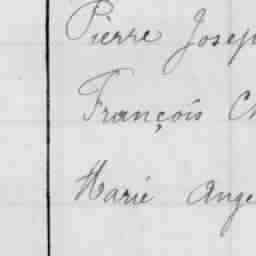 Pierre Josep
François Ch
Marie Ange